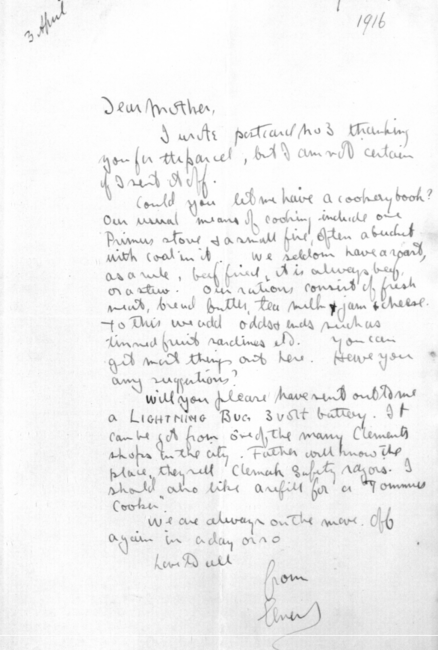 3 April
1916
Dear Mother,
I wrote postcard no 3 thanking
you for the parcel, but I am not certain
if I sent it off.
Could you let me have a cookery book?
Our usual means of cooking include one
Primus stove & a small fire, often a bucket
with coal in it. We seldom have a roast,
as a rule, beef fried, it is always beef,
or a stew. Our rations consist of fresh
meat, bread butter, tea milk & jam & cheese.
To this we add odds & ends such as
tinned fruit sardines etc. You can
get most things out here. Have you
any suggestions?
Will you please have sent out to me
a LIGHTNING BUG 3 volt battery. It
can be got from one of the many Clements
shops in the city. Father will know the
place, they sell Clemak Safety razors. I
should also like a refill for a "Tommies
Cooker".
We are always on the move. Off
again in a day or so
Love to all
from